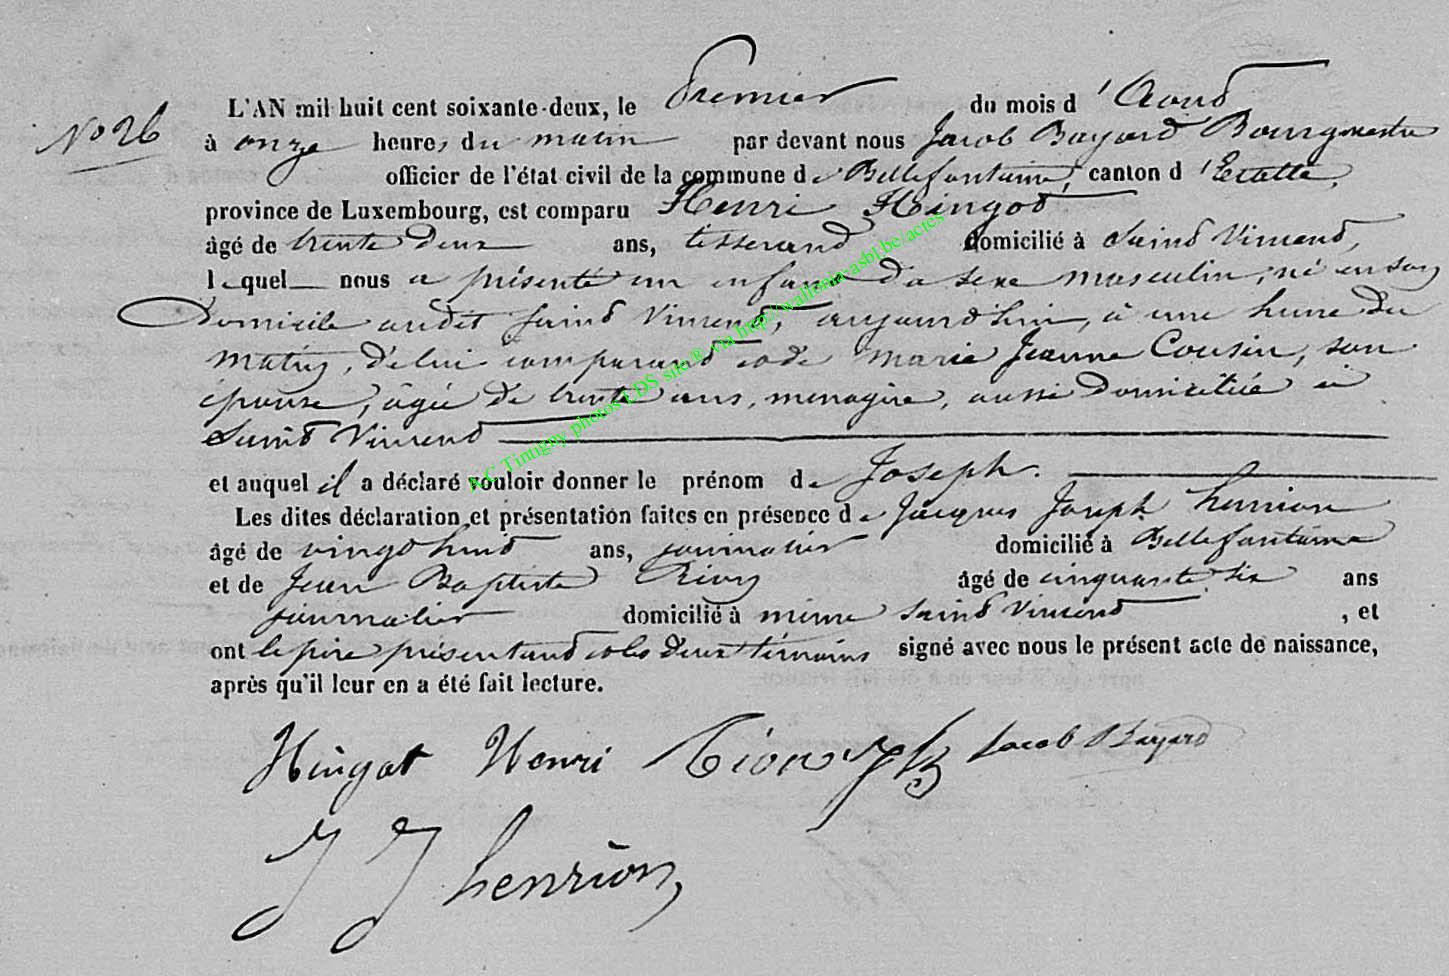 No 26
L'AN mil huit cent soixante-deux, le Premier du mois d'Aout
à onze heures du matin par devant nous Jacob Bayard Bourgmestre
officier de l'état civil de la commune de Bellefontaine, canton d'Etalle,
province de Luxembourg, est comparu Henri Hingot
âgé de trente deux ans, tisserand domicilié à Saint Vincent,
lequel nous a présenté un enfant du sexe masculin, né en son
Domicile audit Saint Vincent, aujourd'hui, à une heure du
matin, de lui comparant et de Marie Jeanne Cousin, son
épouse, âgée de trente ans, menagère, aussi Domiciliée à
Saint Vincent
et auquel il a déclaré vouloir donner le prénom de Joseph.
Les dites déclaration et présentation faites en présence de Jacques Joseph henrion
âgé de vingt huit ans, journalier domicilié à Bellefontaine
et de Jean Baptiste âgé de cinquante six ans
journalier domicilié à même Saint Vincent, et
ont le père présentant et les deux témoins signé avec nous le présent acte de naissance,
après qu'il leur en a été fait lecture.
Hingot Henri Jacob Bayard
J J henrion
A.C Tintigny photos LDS site @ via http://wallonia-asbl.be/actes